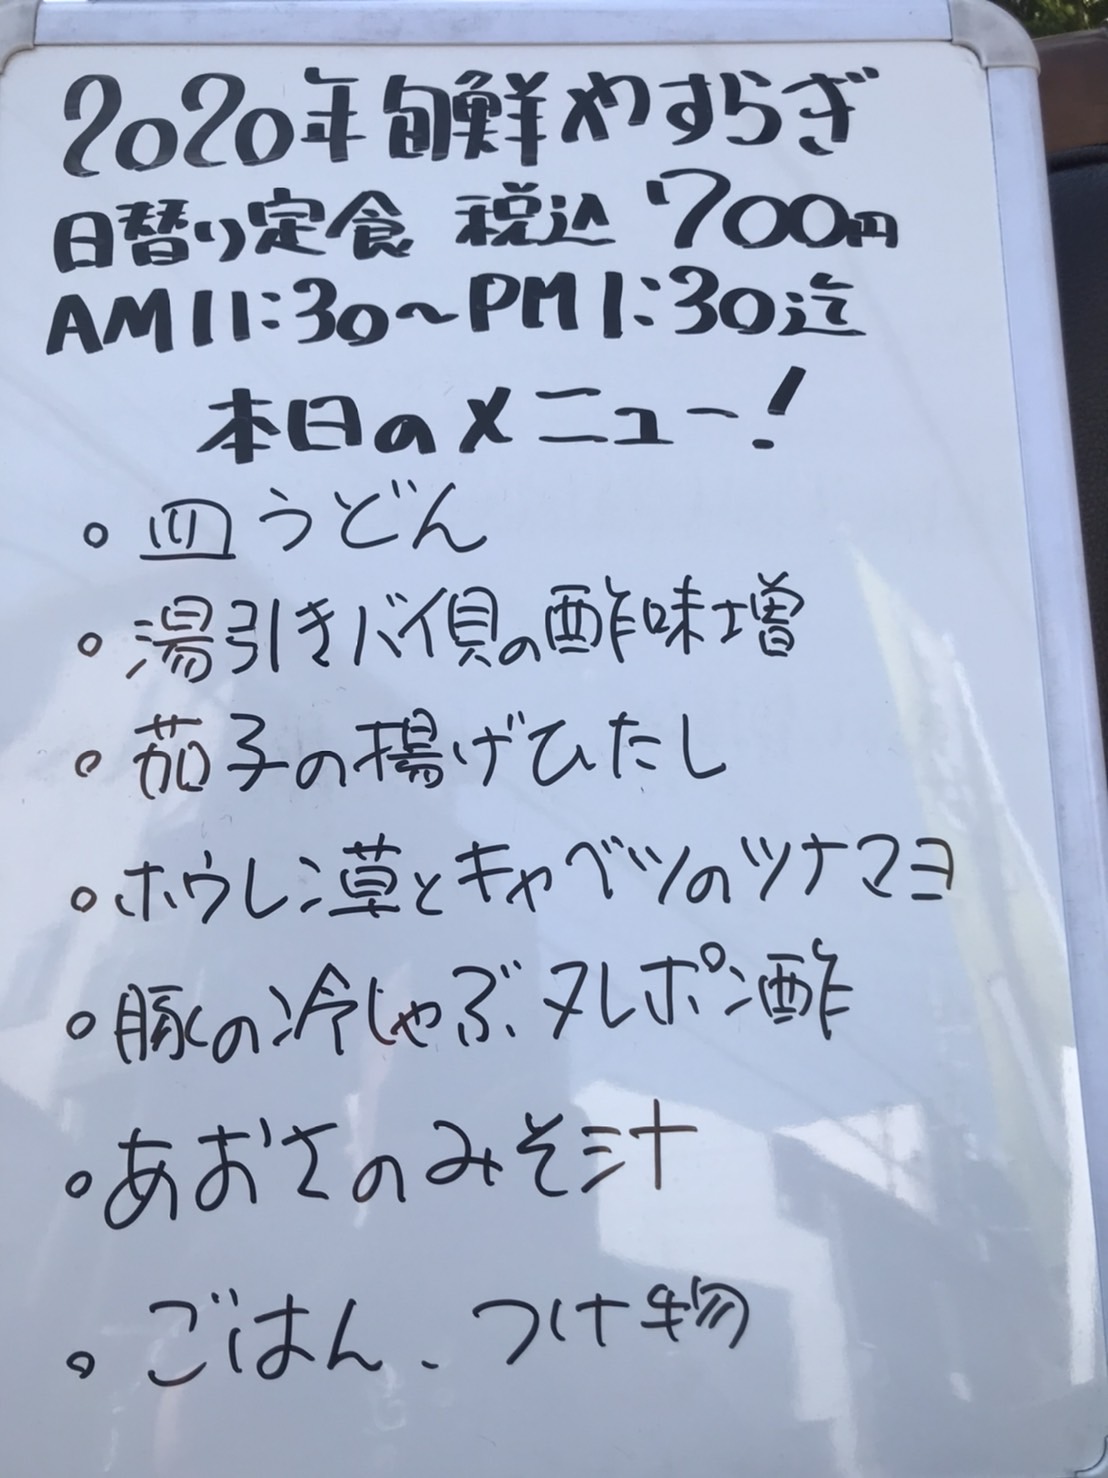 2020年旬鮮やすらぎ
日替り定食 税込 700円
AM11:30〜PM1:30迄
本日のメニュー!
。皿うどん
。湯引きバイ貝の酢味増
。茄子の揚げひたし
。ホウレン草とキャベツのツナマヨ
。豚の冷しゃぶ、ヌレポン酢
。あおさのみそ汁
。ごはん、つけ物